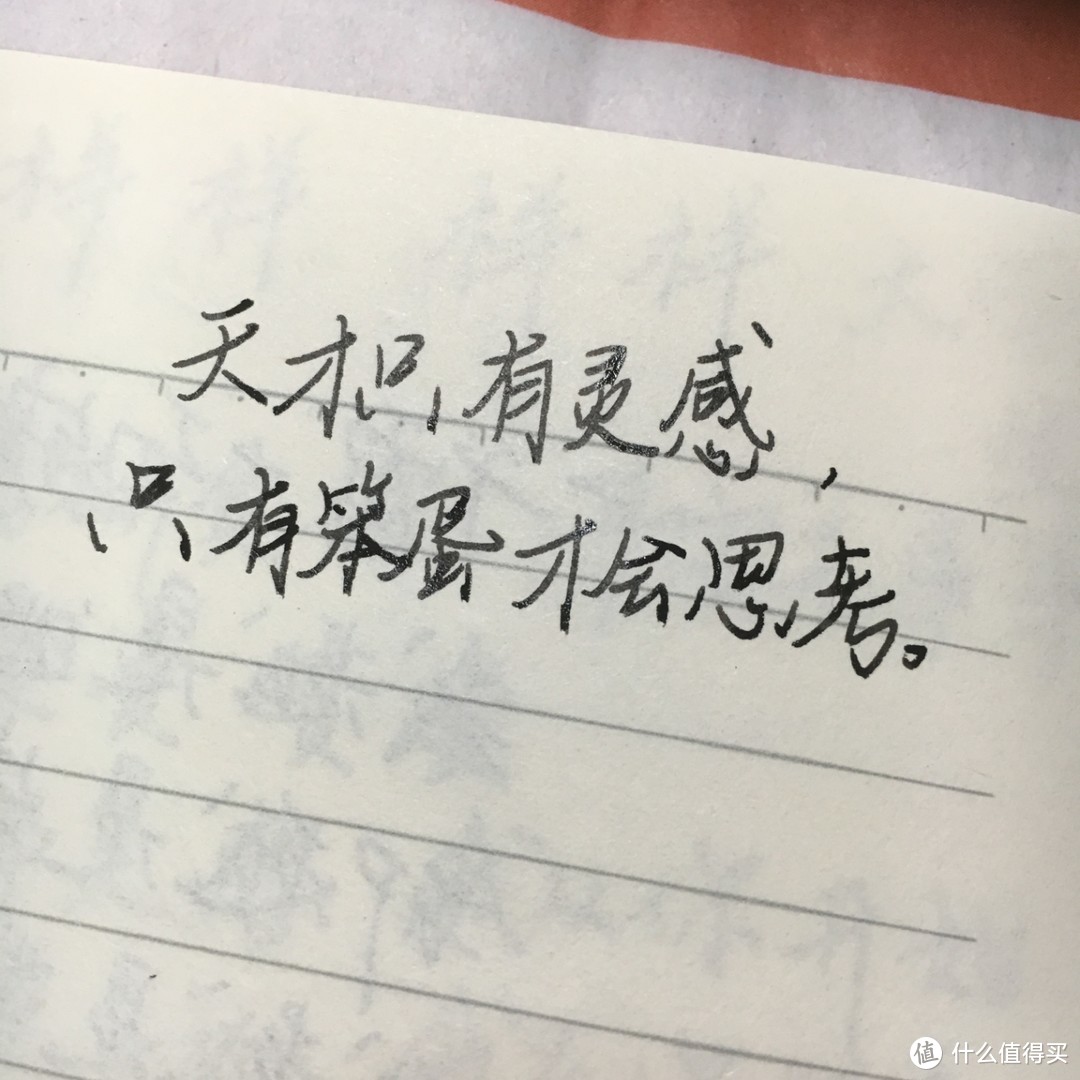 天才只有灵感,
只有笨蛋才会思考。
值 什么值得买